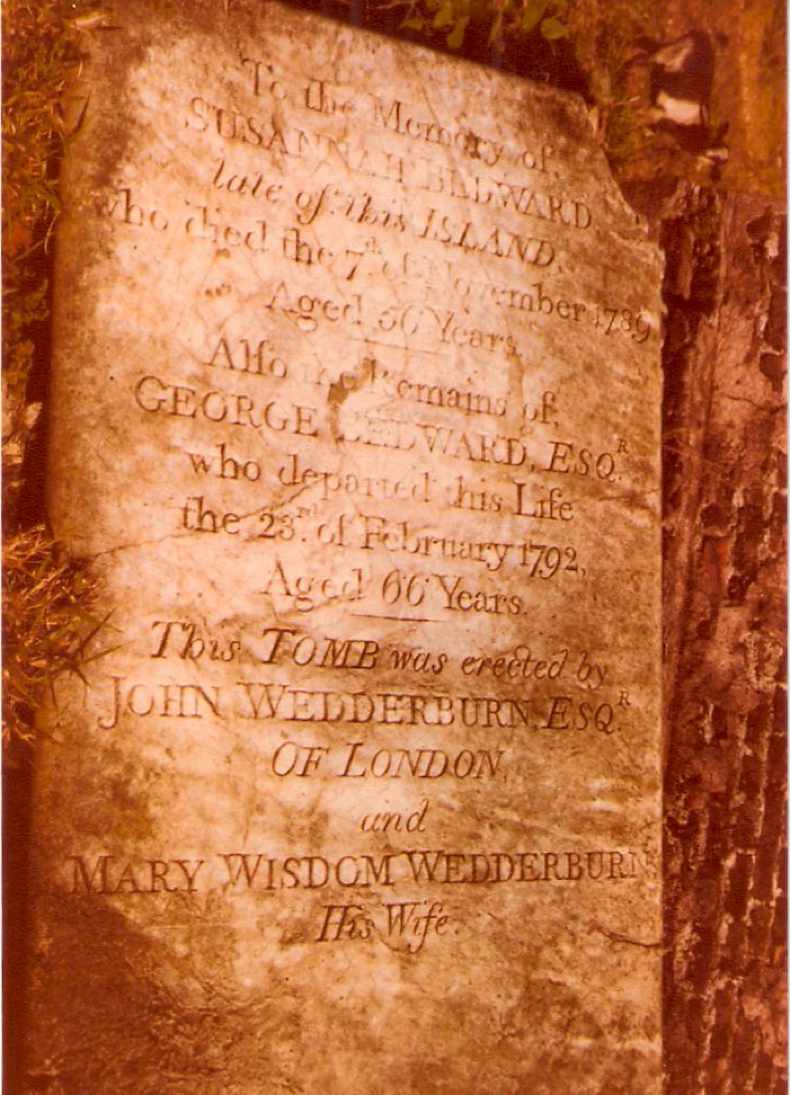 To the Memory of,
SUSANNAH BEDWARD
late of this ISLAND,
who died the 7th. of November 1789
Aged 56 Years.
Alſo the Remains of,
GEORGE BEDWARD, ESQ.R
who departed this Life
the 23.rd of February 1792,
Aged 66 Years.
This TOMB was erected by
JOHN WEDDERBURN, ESQ.R
OF LONDON,
and
MARY WISDOM WEDDERBURN
His Wife.